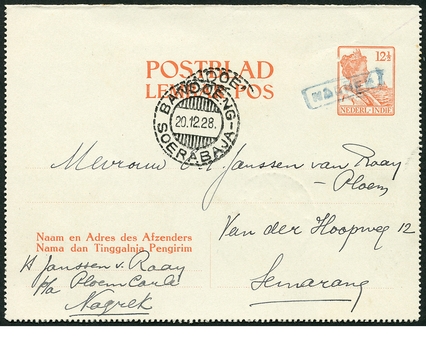 POSTBLAD
LEMBAR POS
12½
NAGREK
NEDERL-INDIË
BANDOENG-
20.12.28.
SOERABAJA
Mevrouw A. Janssen van Raay
-Ploem
Van der Hoopweg 12
Semarang
Naam en Adres des Afzenders
Nama dan Tinggalnja Pengirim
H Janssen v. Raay
p/a Ploem Carli
Nagrek